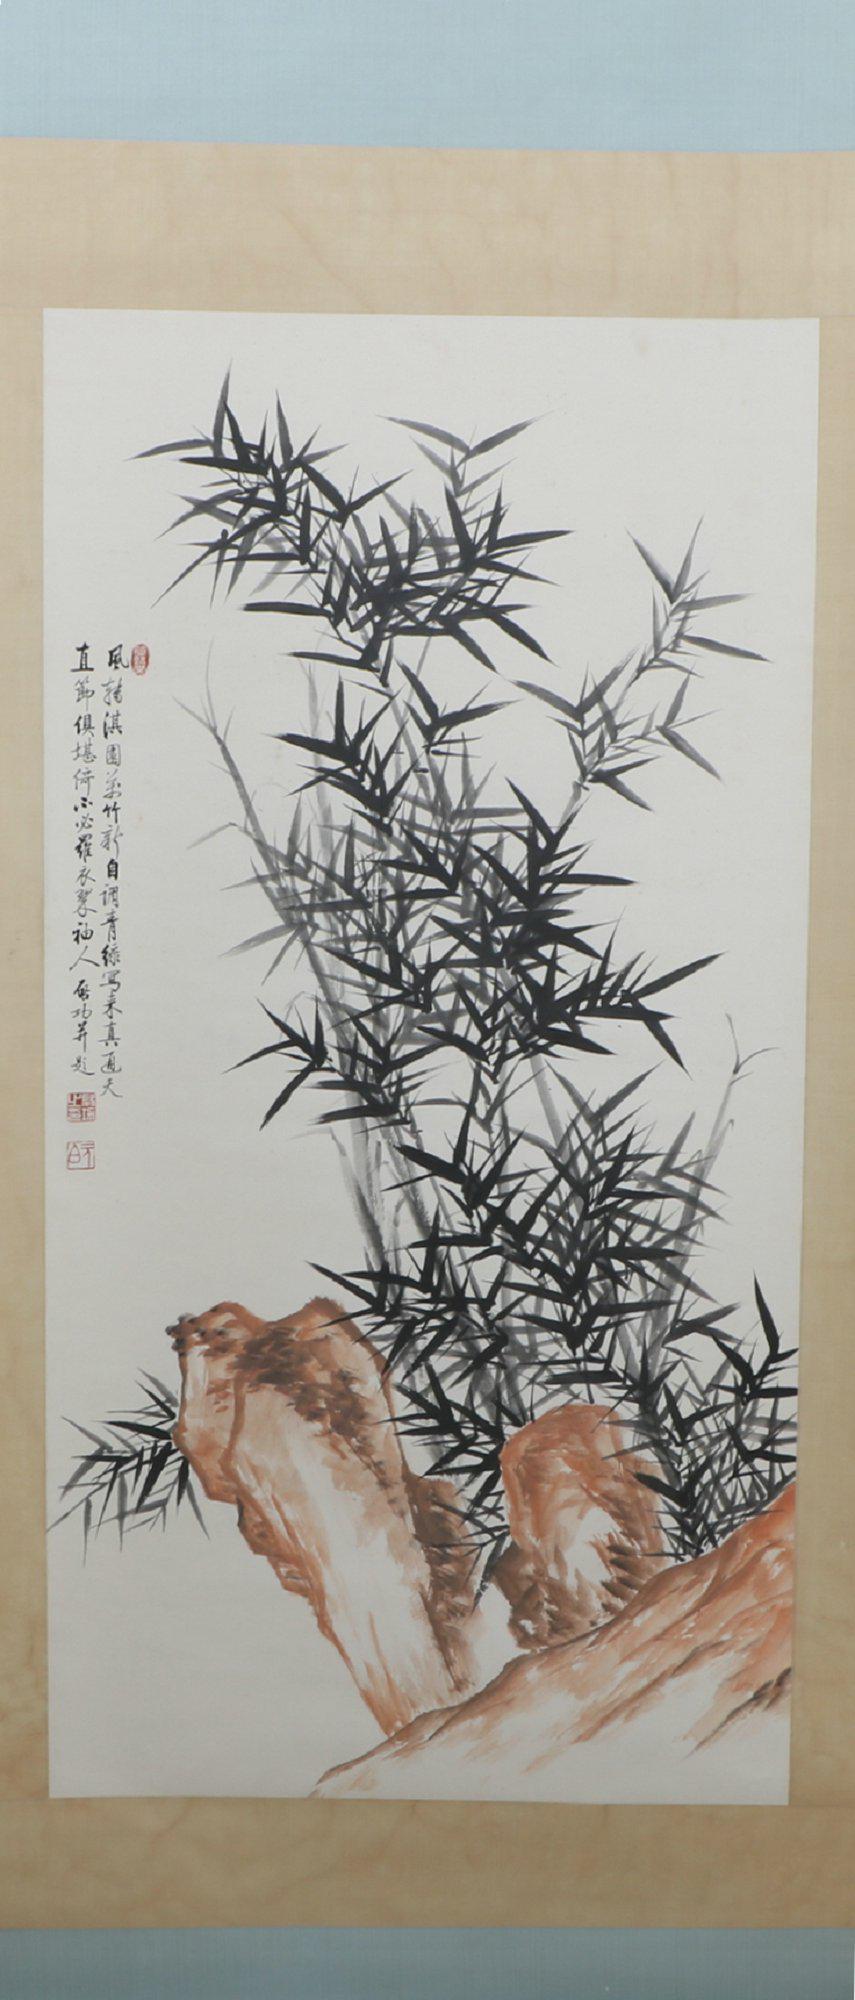 風轉淇園萬竹新自調青綠寫來真通天
直節俱堪倚不必羅衣翠袖人 啟功并題